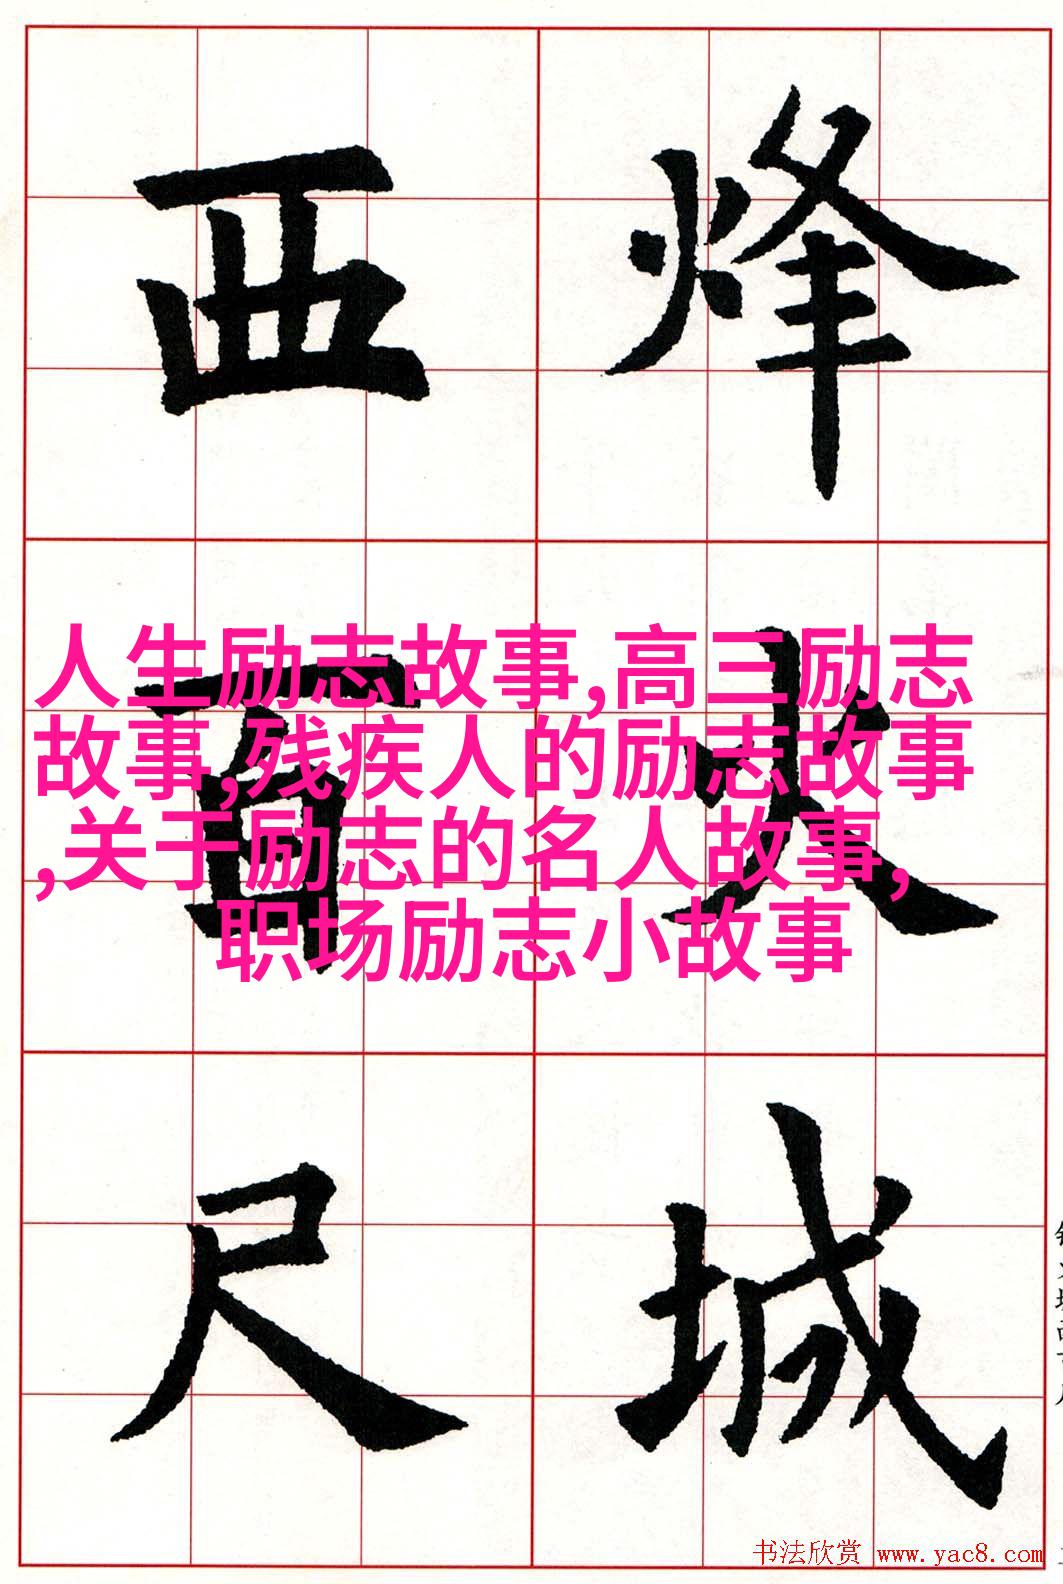 烽火城
西百尺
人生励志故事,高三励志
故事,残疾人的励志故事
,关于励志的名人故事,
职场励志小故事
书法欣赏 www.yac8.com